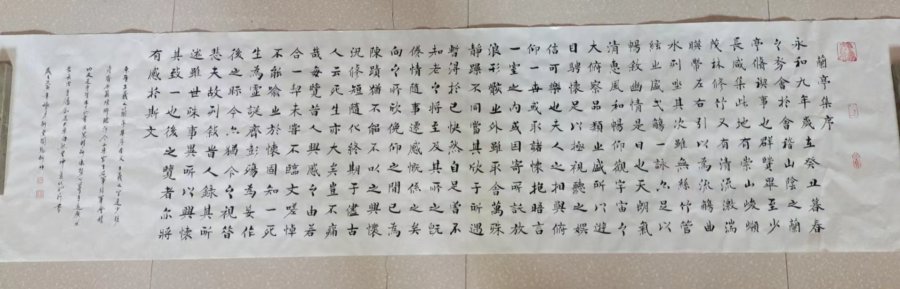 蘭亭集序
永和九年歲在癸丑暮春
之初會於會稽山陰之蘭
亭脩禊事也群賢畢至少
長咸集此地有崇山峻嶺
茂林修竹又有清流激湍
映帶左右引以為流觴曲
水列坐其次雖無絲竹管
絃之盛一觴一詠亦足以
暢敘幽情是日也天朗氣
清惠風和暢仰觀宇宙之
大俯察品類之盛所以遊
目騁懷足以極視聽之娛
信可樂也夫人之相與俯
仰一世或取諸懷抱晤言
一室之內或因寄所託放
浪形骸之外雖取舍萬殊
靜躁不同當其欣于所遇
暫得於己快然自足曾不
知老之將至及其所之既
倦情隨事遷感慨係之矣
向之所欣俛仰之間已為
陳蹟猶不能不以之興懷
況脩短隨化終期于儘古
人云死生亦大矣豈不痛
哉每覽昔人興感之由若
合一契未嘗不臨文嗟悼
不能喻之於懷固知一死
生為虛誕齊彭殤為妄作
後之眂今亦猶今之視昔
悲夫故列敘昔人錄其所
述雖世殊事異所以興懷
其致一也後之覽者亦將
有感於斯文